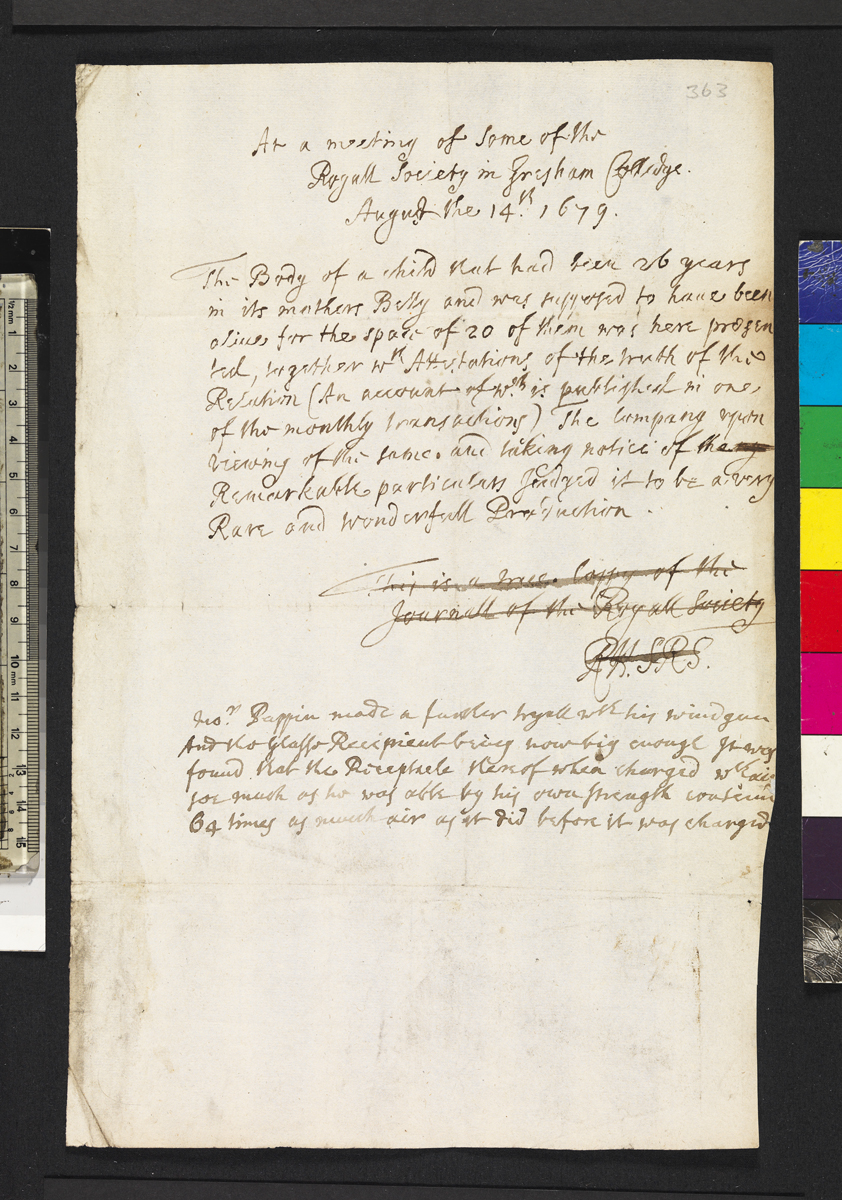 363
At a meeting of some of the
Royall Society in Gresham Colledge.
August the 14.th 1679.
The Body of a child that had been 26 years
in its mothers Belly and was supposed to have been
alive for the space of 20 of them was here presen
ted, together wth Attestations of the truth of the
Relation (An account of wch is published in one
of the monthly transactions) The Company upon
viewing of the same. and taking notice of the
Remarkable particulars Judged it to be a very
Rare and wonderfull Production.
This is a true Coppy of the
Journall of the Royall Society
R H. S R S.
Pappin made a further tryall wth his windgun
And the Glasse Recipient being now big enough It was
found that the Receptacle thereof when charged wth air
soe much as he was able by his own strength containd
64 times as much air as it did before it was charged
1/2 mm 1
2
3
4
5
6
7
8
9
10 mm
11
12
13
14
15